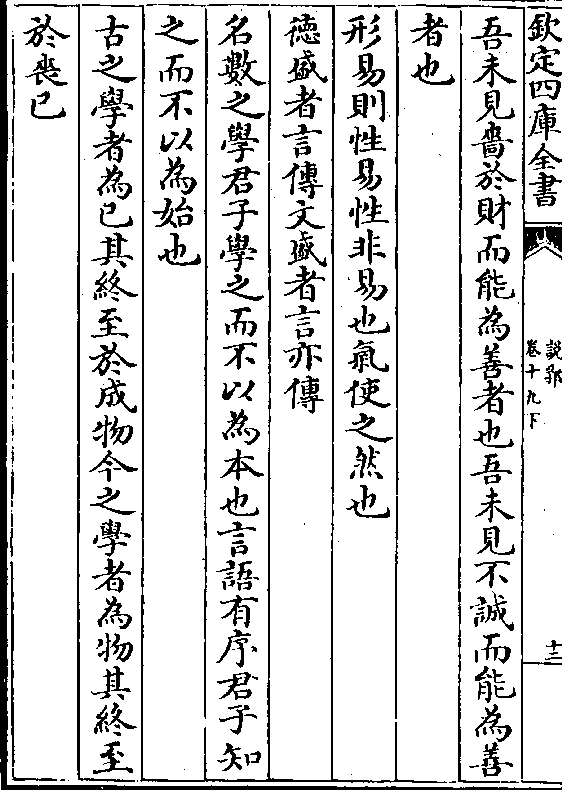 欽定四庫全書
說郛
卷十九下
十三
吾未見嗇於財而能為善者也吾未見不誠而能為善
者也
形易則性易性非易也氣使之然也
徳盛者言傳文盛者言亦傳
名數之學君子學之而不以為本也言語有序君子知
之而不以為始也
古之學者為已其終至於成物今之學者為物其終至
於喪已